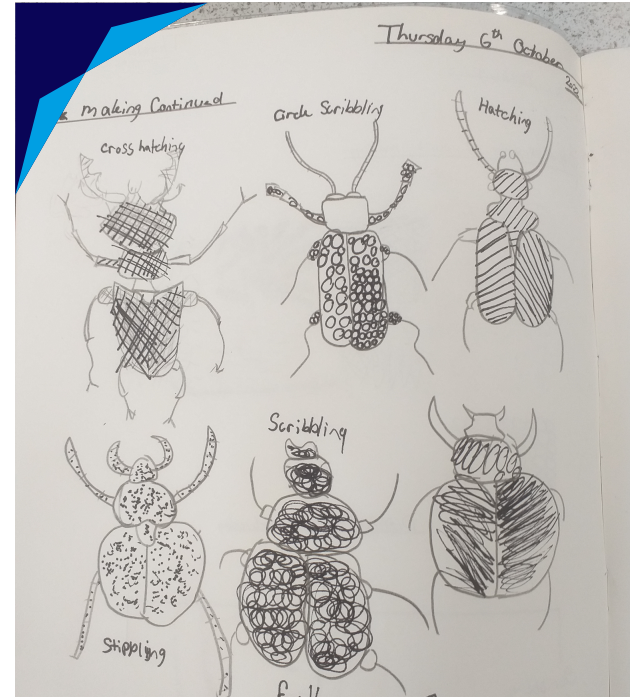 Thursday 6th October
making Continued
Cross hatching
Circle Scribbling
Hatching
Scribbling
Stippling